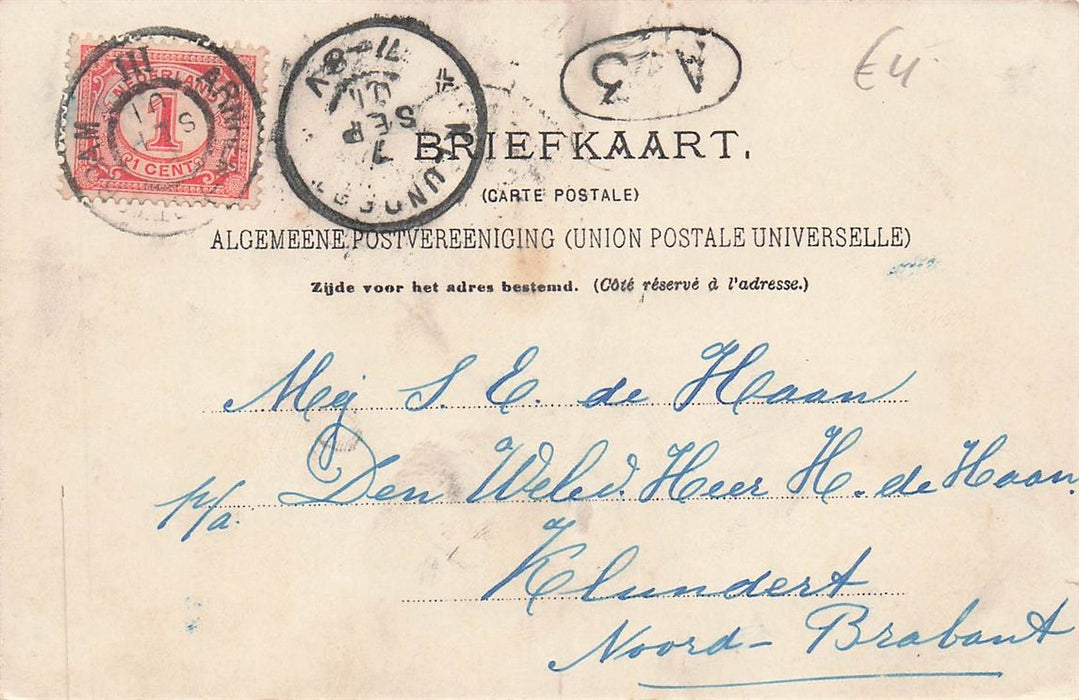 NEDERLAND
1
1 CENT
III
ARN
DAM
KLUNDERT
7 SEP
01
A
3
€4
BRIEFKAART.
(CARTE POSTALE)
ALGEMEENE POSTVEREENIGING (UNION POSTALE UNIVERSELLE)
Zijde voor het adres bestemd. (Côté réservé à l'adresse.)
Mej S. E. de Haan
p/a. Den Weled. Heer H. de Haan.
Klundert
Noord-Brabant